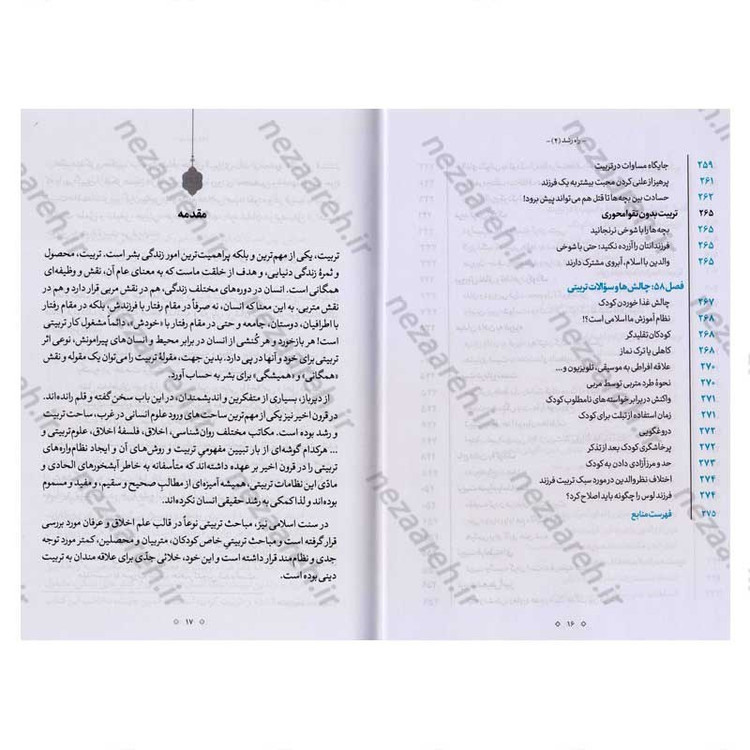 - راه رشد (۲) -
جایگاه مساوات در تربیت ۲۵۹
پرهیز از علنی کردن محبت بیشتر به یک فرزند ۲۶۱
حسادت بین بچه‌ها تا قتل هم می‌تواند پیش برود! ۲۶۲
تربیت بدون تقوا محوری ۲۶۵
بچه‌ها را با شوخی نرنجانید ۲۶۵
فرزندانتان را آزرده نکنید؛ حتی با شوخی ۲۶۵
والدین با اسلام، آبروی مشترک دارند ۲۶۵
فصل ۵۸: چالش‌ها و سؤالات تربیتی
چالش غذا خوردن کودک ۲۶۷
نظام آموزش ما اسلامی است؟! ۲۶۸
کودکان تقلیدگر ۲۶۸
کاهلی یا ترک نماز ۲۶۸
علاقه افراطی به موسیقی، تلویزیون و... ۲۷۰
نحوهٔ طرد متربی توسط مربی ۲۷۰
واکنش در برابر خواسته‌های نامطلوب کودک ۲۷۱
زمان استفاده از تبلت برای کودک ۲۷۱
دروغگویی ۲۷۲
پرخاشگری کودک بعد از تذکر ۲۷۲
حد و مرز آزادی دادن به کودک ۲۷۳
اختلاف نظر والدین در مورد سبک تربیت فرزند ۲۷۴
فرزند لوس را چگونه باید اصلاح کرد؟ ۲۷۴
فهرست منابع ۲۷۵
۱۶
مقدمه
تربیت، یکی از مهم‌ترین و بلکه پراهمیت‌ترین امور زندگی بشر است. تربیت، محصول
و ثمرهٔ زندگی دنیایی، و هدف از خلقت ماست که به معنای عام آن، نقش و وظیفه‌ای
همگانی است. انسان در دوره‌های مختلف زندگی، هم در نقش مربی قرار دارد و هم در
نقش متربی. به این معنا که انسان، نه صرفاً در مقام رفتار با فرزندش، بلکه در مقام رفتار با
اطرافیان، دوستان، جامعه و حتی در مقام رفتار با «خودش»، دائماً مشغول کار تربیتی
است! هر بازخورد و هر کُنشی از انسان در برابر محیط و انسان‌های پیرامونش، نوعی اثر
تربیتی برای خود و آنها در پی دارد. بدین جهت، مقولهٔ تربیت را می‌توان یک مقوله و نقش
«همگانی» و «همیشگی» برای بشر به حساب آورد.
از دیرباز، بسیاری از متفکرین و اندیشمندان، در این باب سخن گفته و قلم رانده‌اند.
در قرون اخیر نیز یکی از مهم‌ترین ساحت‌های ورود علوم انسانی در غرب، ساحت تربیت
و رشد بوده است. مکاتب مختلف روان‌شناسی، اخلاق، فلسفهٔ اخلاق، علوم تربیتی و
... هرکدام گوشه‌ای از بار تبیین مفهومیِ تربیت و روش‌های آن و ایجاد نظام‌واره‌های
تربیتی را در قرون اخیر بر عهده داشته‌اند که متأسفانه به خاطر آبشخورهای الحادی و
مادّی این نظامات تربیتی، همیشه آمیزه‌ای از مطالب صحیح و سقیم، و مفید و مسموم
بوده‌اند و لذا کمکی به رشد حقیقی انسان نکرده‌اند.
در سنت اسلامی نیز، مباحث تربیتی نوعاً در قالب علم اخلاق و عرفان مورد بررسی
قرار گرفته است و مباحث تربیتیِ خاص کودکان، متربیان و محصلین، کمتر مورد توجه
جدی و نظام‌مند قرار داشته است و این خود، خلائی جدّی برای علاقه مندان به تربیت
دینی بوده است.
۱۷
nezaareh.ir
nezaareh.ir
nezaareh.ir
nezaareh.ir
nezaareh.ir
nezaareh.ir
nezaareh.ir